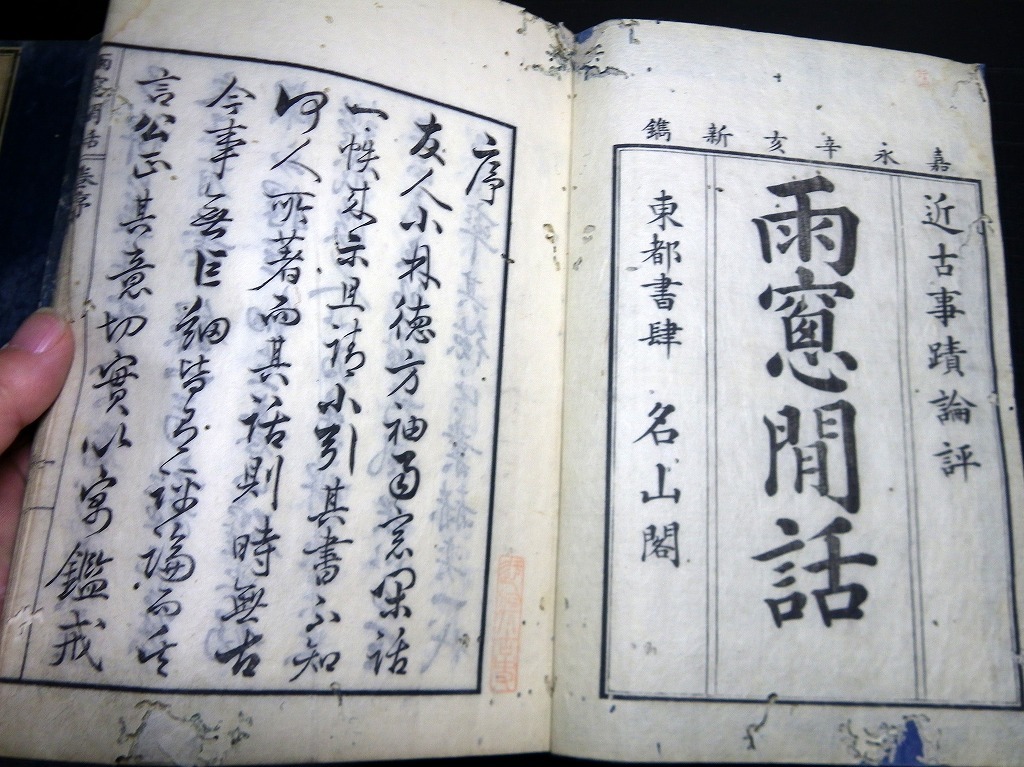 嘉永辛亥新鐫
近古事蹟論評
雨窻閒話
東都書肆 名山閣
序
友人小林徳方袖雨窓閑話
一帙来示且請小引其書不知
何人所著而其話則時無古
今事無巨細皆有評論而其
言公正其意切實以寓鑑戒
雨窓閒話 巻序